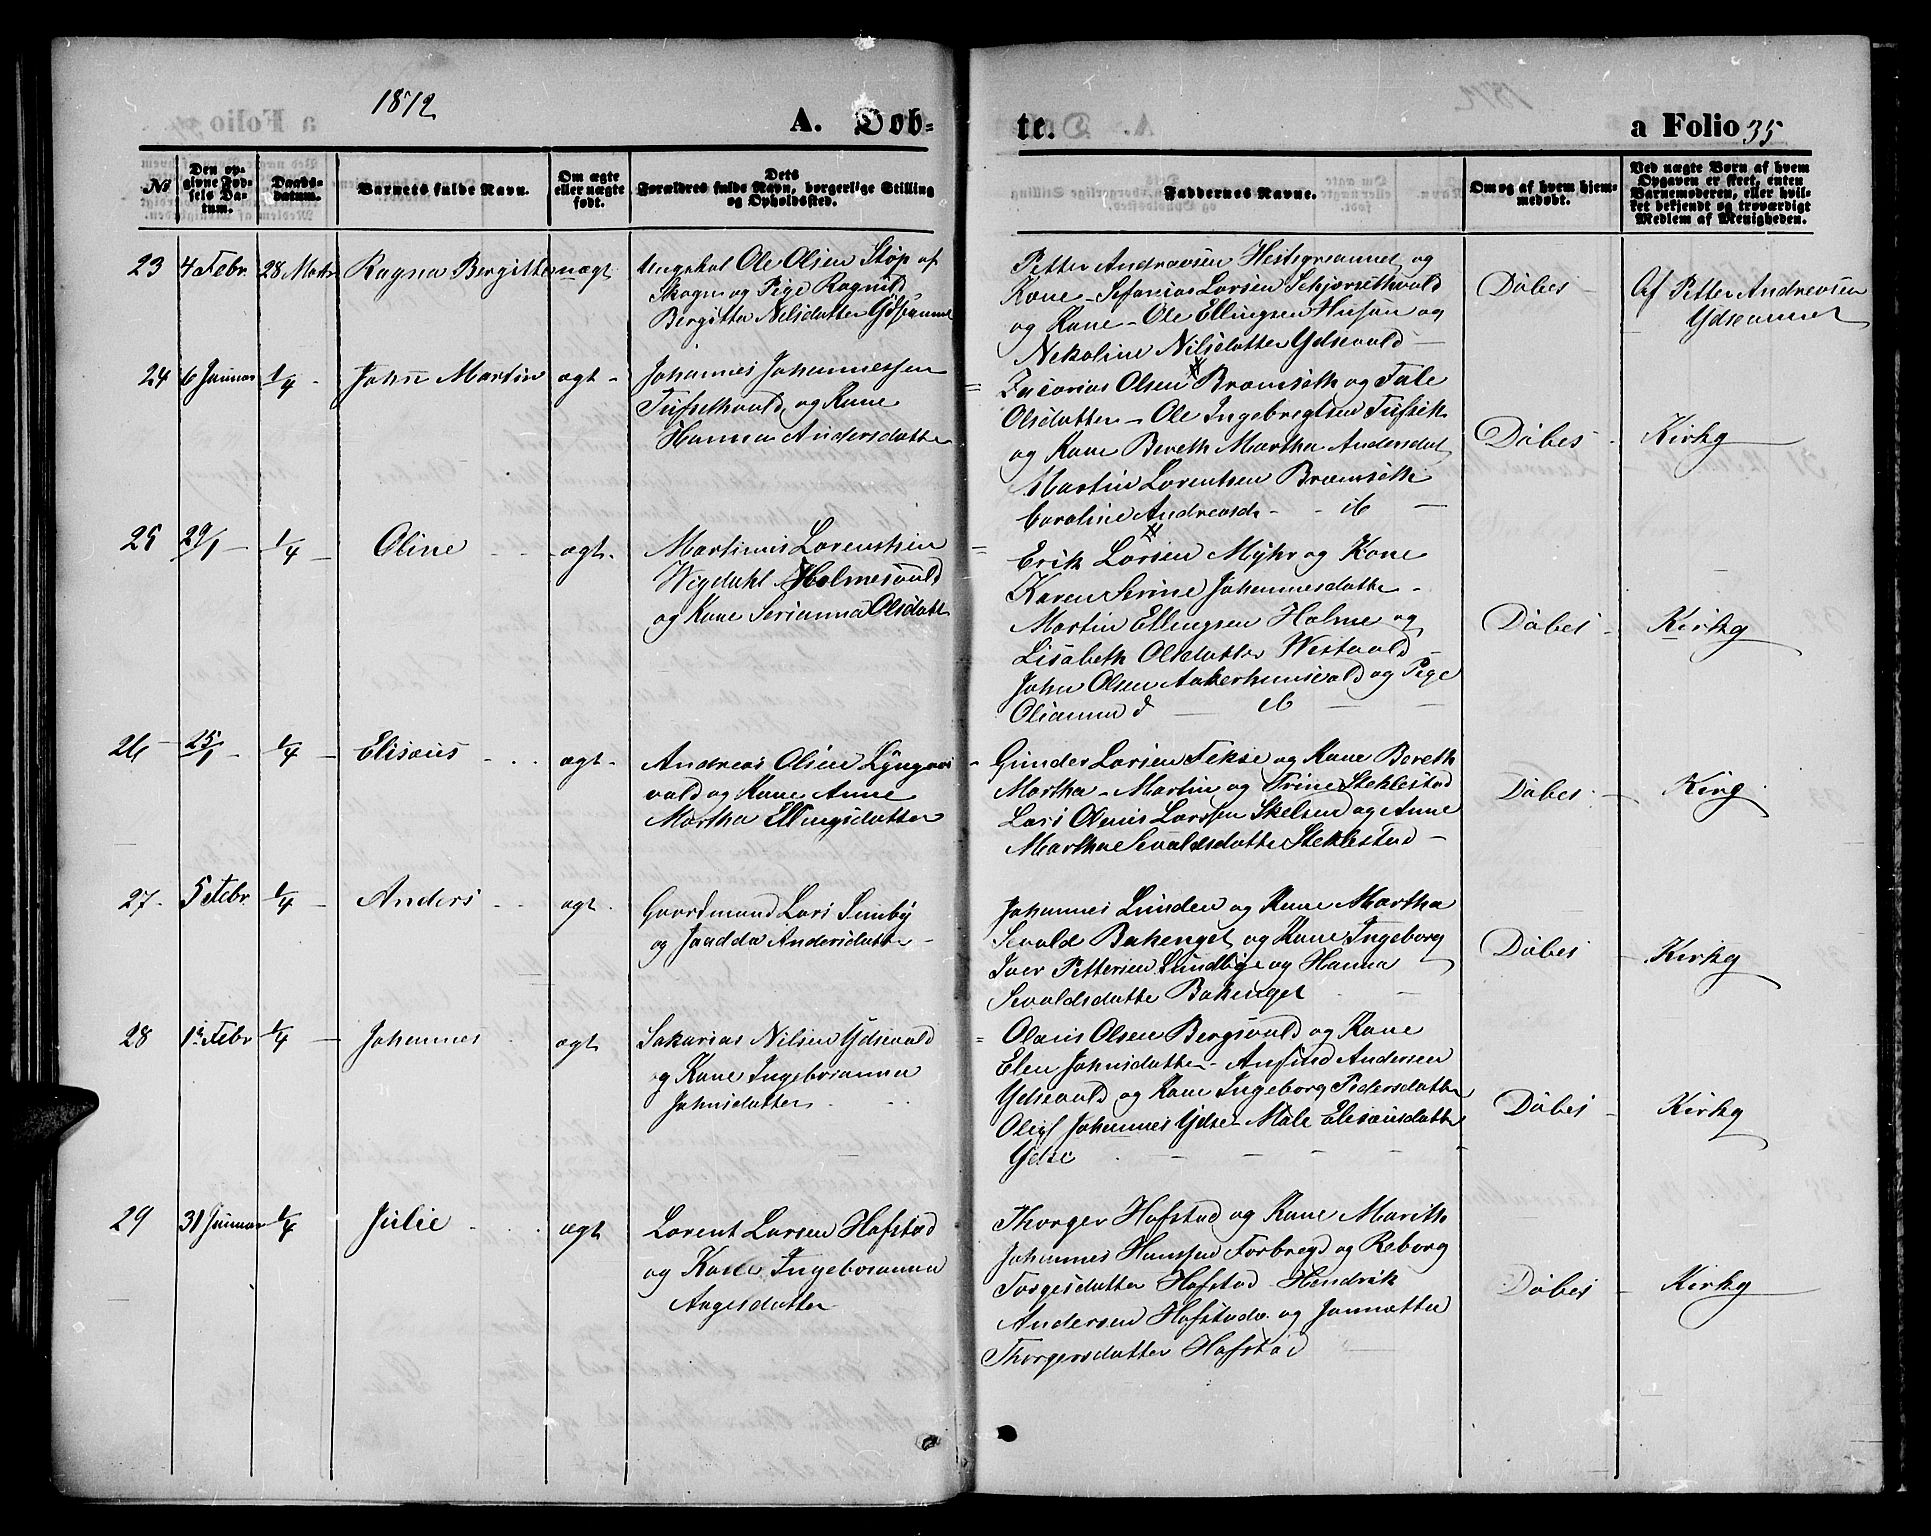 1872
A. Døb-
te.
a Folio 35
No
Den opgivne Fødsels Datum.
Daabsdatum.
Barnets fulde Navn.
Om ægte eller uægte født.
Dets Forældres fulde Navn, borgerlige Stilling og Opholdssted.
Faddernes Navne.
Om og af hvem hjemmedøbt.
Ved uægte Børn af hvem Opgaven er skeet, enten Barnemoderen, eller hvilket bekjendt og troværdigt Medlem af Menigheden.
23 4 Febr. 28 Marts Ragna Bergitte uægt.
Ungekal Ole Olsen Støp af
Skogn og Pige Ragnild
Bergitta Nilsdatter Ydseaunet
Petter Andreasen Hestgreaunet og
Kone - Sefanias Larsen Schjørsethvald
og Kone - Ole Ellingsen Husan og
Nekoline Nilsdatter Ydsevald -
Døbes - Af Petter Andreasen
Ydseaunet
24 6 Januar 1/4 - John Martin ægt -
Johannes Johannessen
Tufsethvald og Kone
Hanna Andersdatter
= Zacarias Olsen Bramseth og
Olsdatter - Ole Ingebregtsen Tufseth
og Kone Bereth Martha Andersdat
Martin Lorentsen Bramseth
Caroline Andreasd - - ib -
Døbes - Kirkg
25 29/1 - 1/4 - Oline - - ægt -
Martinus Lorentsen
Wegdahl Holmesvald
og Kone Serianna Olsdatt
= Erik Larsen Myhr og Kone
Karen Serine Johannesdatte -
Martin Ellingsen Holme og
Lisabeth Olsdatter Westvald -
John Olsen Aakerhusvald og Pige
Olianna d - ib -
Døbes - Kirkg
26 - 25/1 - 1/4 - Elisæus - - - ægt -
Andreas Olsen Lyngaas
vald og Kone Anne
Martha Ellingsdatter
- Gunder Larsen Fekse og Kone Bereth
Martha - Martin og Trine Steklestad
Lars Olaus Larssen Skelsen og Anne
Martha Sevaldsdatte Steklestad -
Døbes - Kirg
27 - 5 Febr. 1/4 - Anders - - ægt -
Gaardmand Lars Sundby
og Jaadda Andersdatte -
Johannes Lunden og Kone Martha
Sevald Bakenget og Kone Ingeborg
Iver Pettersen Sundbye og Hanna
Sevaldsdatte Bakenget - -
Døbes Kirkg
28 1ste Febr 1/4 - Johannes - ægt
Sakarias Nilsen Ydsevald
og Kone Ingeboranna
Johnsdatter - -
= Olaus Olsen Bergsvald og Kone
Elen Johnsdatte - Anfind Andersen
Ydsevald og Kone Ingeborg Pedersdatte
Oluf Johannes Ydse - Male Elisæusdatte
Ydse - - - - -
Døbes - Kirkg
29 31 Januar 1/4 Julie - - - ægt
Lorent Larsen Hofstad
og Kone Ingeboranna
Aagesdatter
Thorger Hofstad og Kone Marith
Johannes Hanssen Forbregd og Reborg
Torgesdatter Hofstad - Hendrik
Andersen Hofstad og Jonnetta
Thorgersdatter Hofstad
Døbes - Kirkg